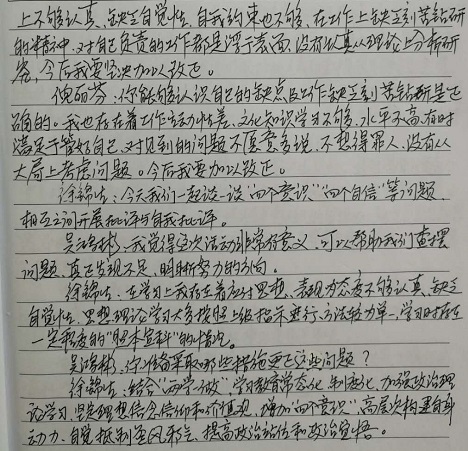 上不够认真、缺乏自觉性、自我约束也不够、在工作上缺乏刻苦钻研
的精神、对自己负责的工作都是浮于表面、没有认真从理论上分析研
究，今后我要坚决加以改正。
倪丽芬：你能够认识自己的缺点及工作缺乏刻苦钻研是正
确的。我也存在着工作主动性差、文化知识学习不够、水平不高、有时
满足于管好自己、对见到的问题不愿意多说、不想得罪人、没有从
大局上考虑问题。今后我要加以改正。
徐锦生：今天我们一起谈一谈"四个意识""四个自信"等问题、
相互之间开展批评与自我批评。
吴鸿梯：我觉得这次活动非常有意义、可以帮助我们查摆
问题、真正发现不足、明晰努力的方向。
徐锦生：在学习上我存在着应付思想、表现为态度不够认真、缺乏
自觉性、思想理论学习大多按照上级指示进行、方法较为单一、学习时存在
一定程度的"照本宣科"的情况。
吴鸿梯：你准备采取哪些措施更正这些问题？
徐锦生：结合"两学一做"，学习教育常态化、制度化、加强政治理
论学习、坚定理想信念信仰和价值观、增加"四个意识"、高层次构建自身
动力、自觉抵制歪风邪气、提高政治站位和政治觉悟。